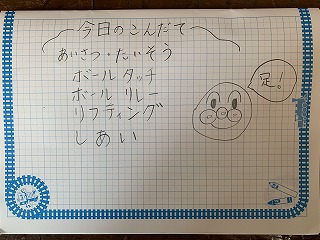 今日のこんだて
あいさつ・たいそう
ボール タッチ
ボール リレー
リフティング
しあい
足!